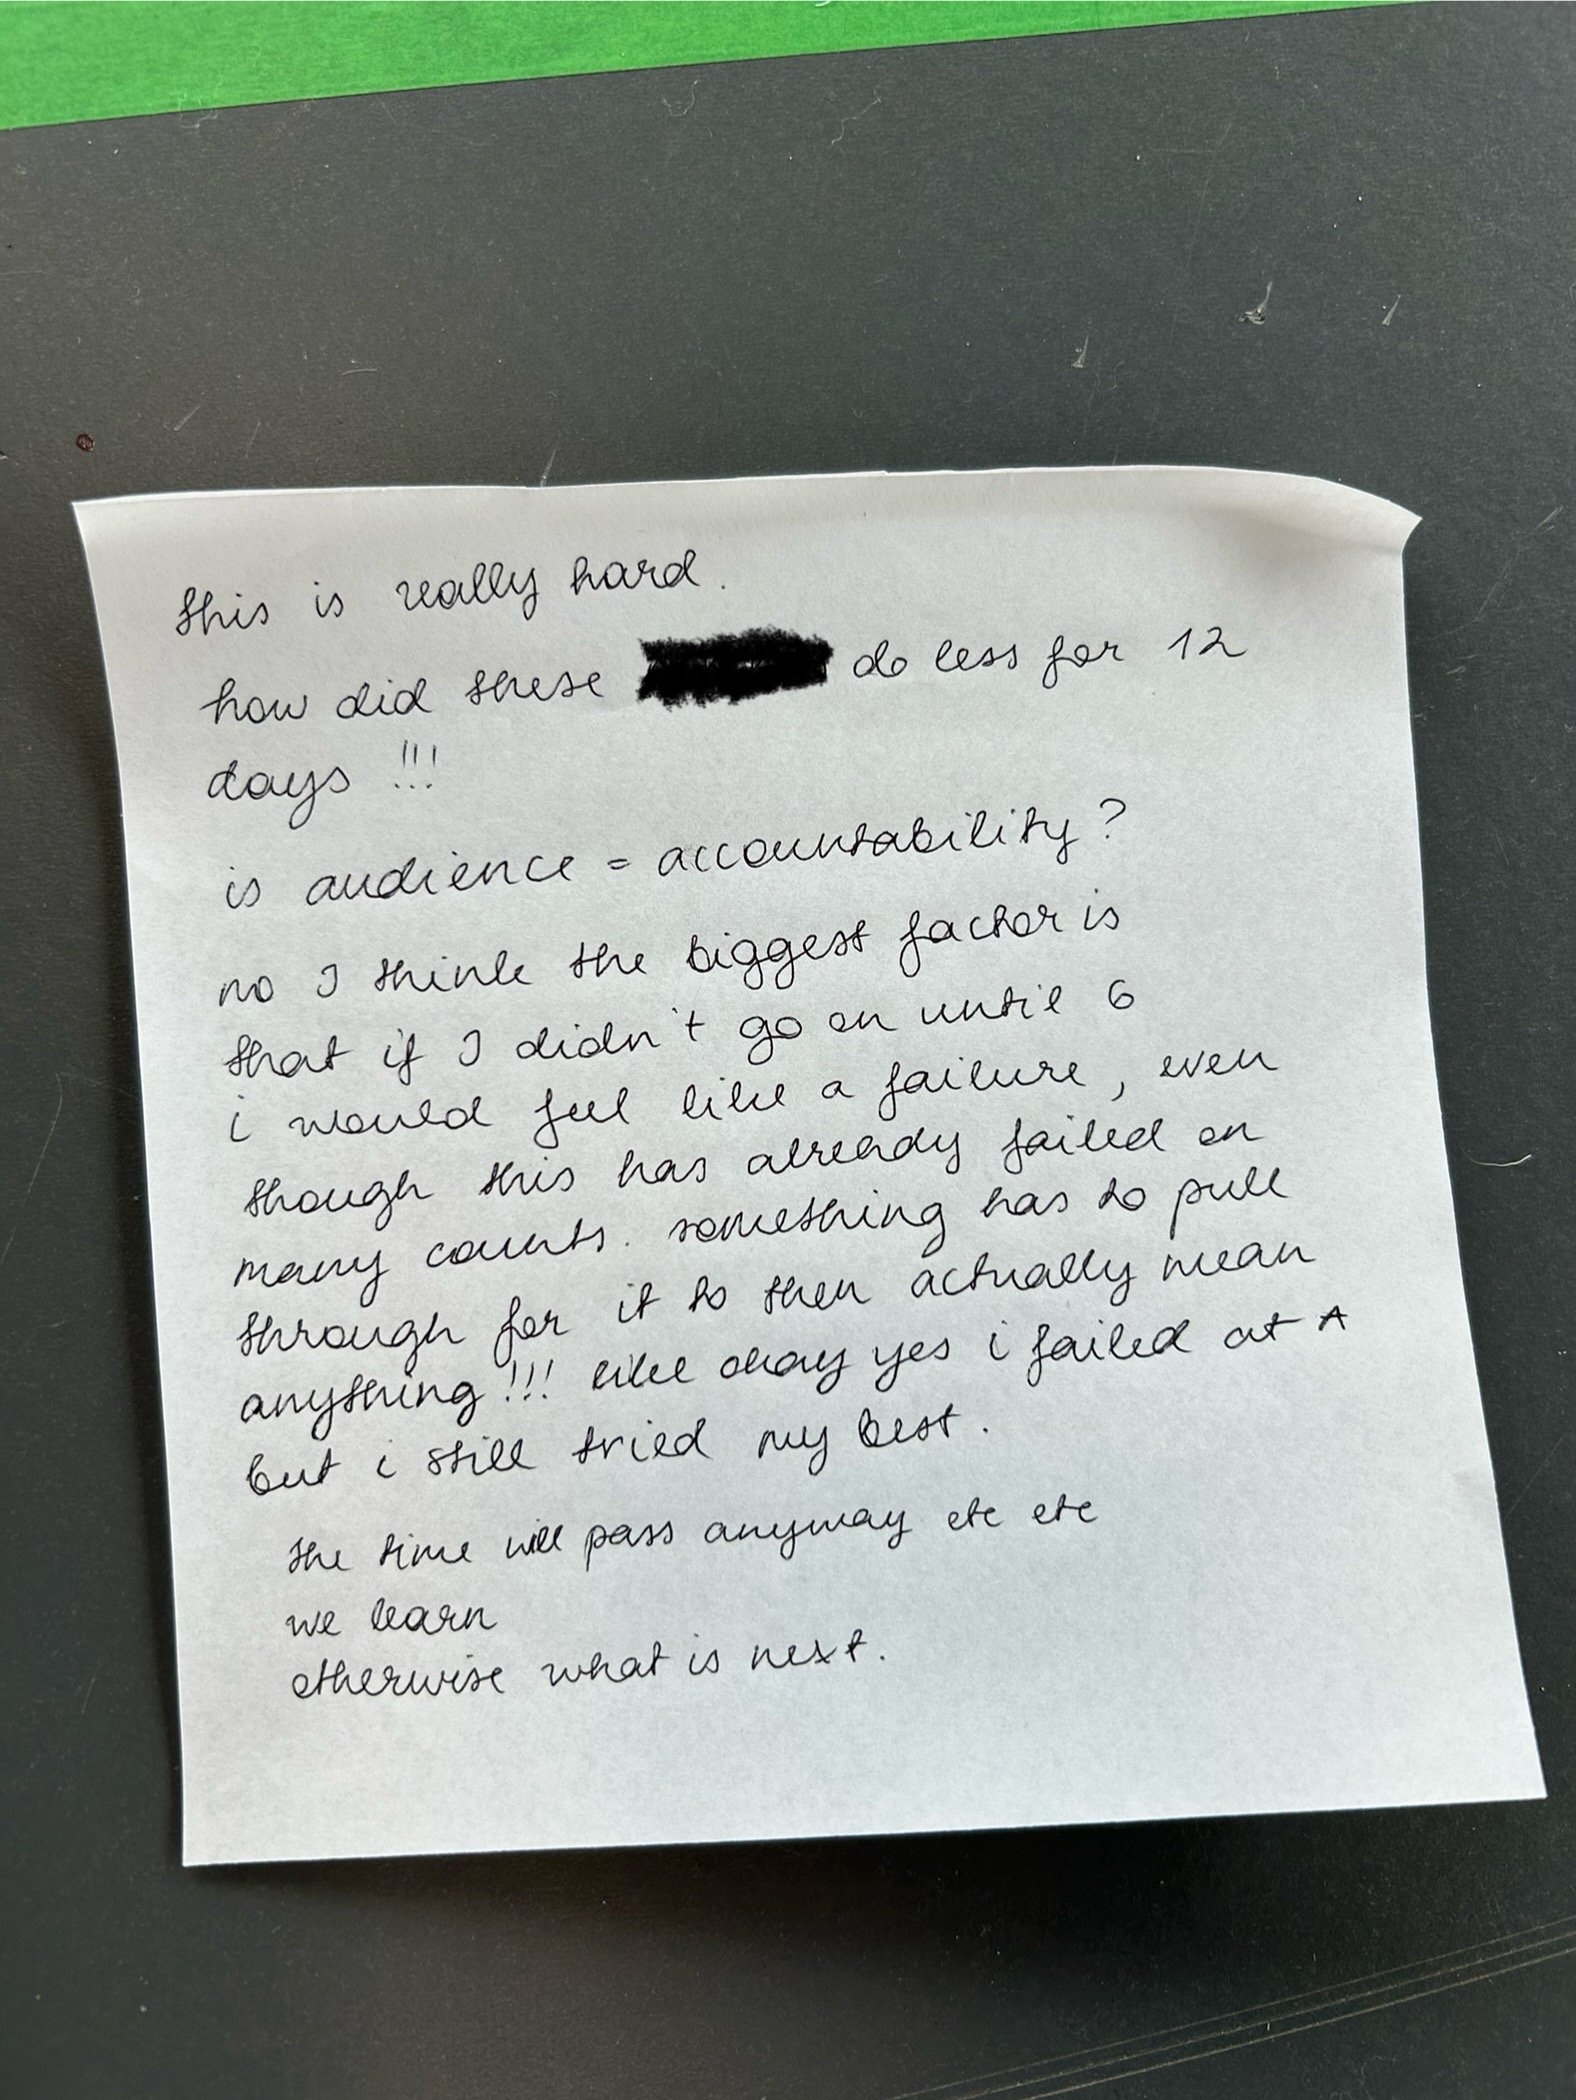 this is really hard.
how did these do less for 12
days !!!
is audience = accountability?
no I think the biggest factor is
that if I didn't go on until 6
i would feel like a failure, even
though this has already failed on
many counts. something has to pull
through for it to then actually mean
anything!!! like okay yes i failed at
but i still tried my best.
the time will pass anyway etc etc
we learn
otherwise what is next.